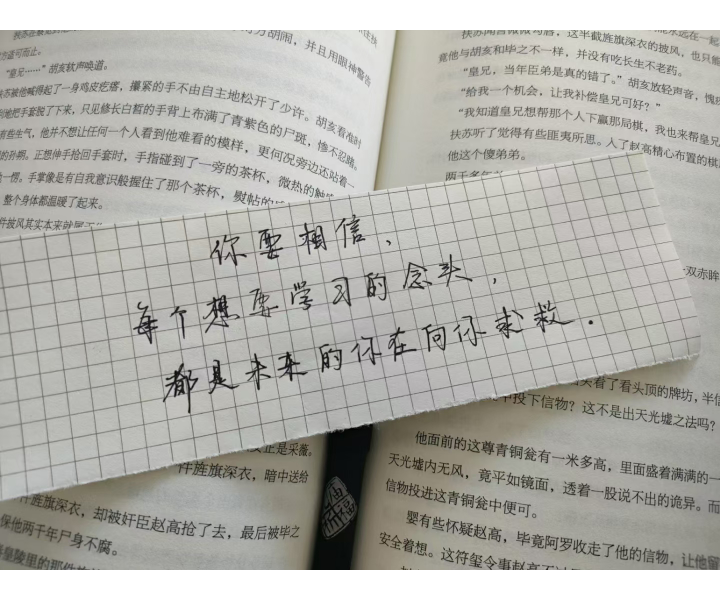 方胡闹，并且用眼神警告
方可而止。
“皇兄……”胡亥软声唤道。
扶苏被他喊得起了一身鸡皮疙瘩，攥紧的手不由自主地松开了少许。胡亥看准时
利地把手套脱了下来，只见修长白皙的手背上布满了青紫色的尸斑，惨不忍睹。
有些生气，他并不想让任何一个人看到他难看的模样，更何况旁边还站着一
的孙朔。正想伸手抢回手套时，手指碰到了一旁的茶杯，微热的触
一愣。手掌像是有自我意识般握住了那个茶杯，熨帖的
整个身体都温暖了起来。
件披风其实本来就
扶苏闻言微微勾唇，这半截旌旗深衣的披风，也只能
竟他与胡亥和毕之不一样，并没有吃长生不老药。
“皇兄，当年臣弟是真的错了。”胡亥放轻声音，愧
“给我一个机会，让我补偿皇兄可好？”
“我知道皇兄想帮那个人下赢那局棋，我也来帮皇兄
扶苏听了觉得有些匪夷所思。入了赵高精心布置的棋
他这个傻弟弟。
两千多年
一双赤眸
你要相信，
每个想要学习的念头，
都是未来的你在向你求救.
正是采薇。
件旌旗深衣，暗中送给
件旌旗深衣，却被奸臣赵高抢了去，最后被毕之
保他两千年尸身不腐。
皇陵里的那件
头看了看头顶的牌坊，半信
中投下信物？这不是出天光墟之法吗？
他面前的这尊青铜瓮有一米多高，里面盛着满满的一
天光墟内无风，竟平如镜面，透着一股说不出的诡异。而
信物投进这青铜瓮中便可。
婴有些怀疑赵高，毕竟阿罗收走了他的信物，让他留
安全着想。这符玺令事赵高不